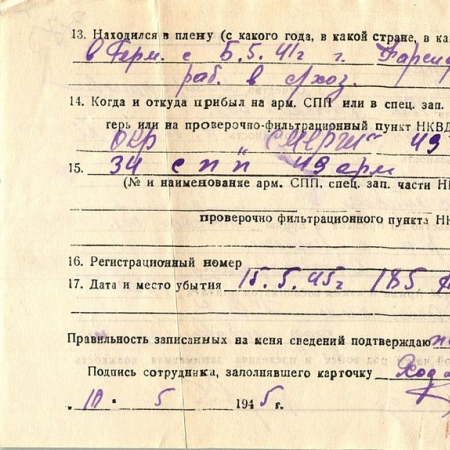 13. Находился в плену (с какого года, в какой стране, в ка
в Герм. с 5.5.41 г. г.
раб. в с/хоз.
14. Когда и откуда прибыл на арм. СПП или в спец. зап.
герь или на проверочно-фильтрационный пункт НКВД
окр "Смерш" 49
15. 34 с п п 49 арм
(№ и наименование арм. СПП, спец. зап. части НК
проверочно фильтрационного пункта НК
16. Регистрационный номер
17. Дата и место убытия 15.5.45г 185
Правильность записанных на меня сведений подтверждаю
Подпись сотрудника, заполнявшего карточку
10. 5 1945г.